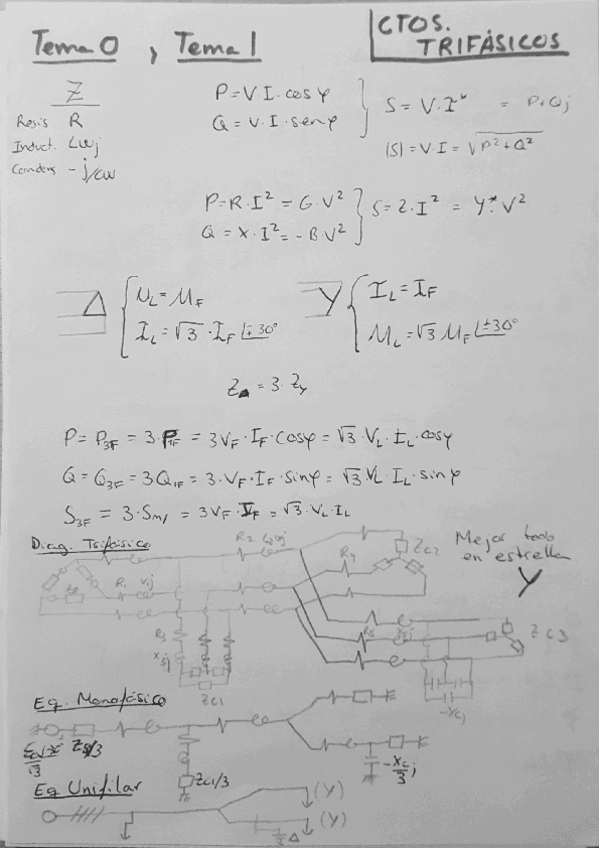 Tema 0 , Tema 1
CTOS. TRIFÁSICOS
Z
Resis R
Induct. Lωj
Condens -j/cω
P = V·I·cosφ
Q = V·I·senφ
S = V·I* = P+Qj
|S| = V·I = √P²+Q²
P = R·I² = G·V²
Q = X·I² = -B·V²
S = Z·I² = Y*·V²
Δ
U_L = U_F
I_L = √3·I_F ∠±30°
Y
I_L = I_F
U_L = √3 U_F ∠±30°
Z_Δ = 3·Z_Y
P = P_3F = 3·P_1F = 3V_F·I_F·cosφ = √3·V_L·I_L·cosφ
Q = Q_3F = 3Q_1F = 3·V_F·I_F·sinφ = √3·V_L·I_L·sinφ
S_3F = 3·S_M1 = 3V_F·I_F = √3·V_L·I_L
Diag. Trifásico
Mejor todo
en estrella
Y
R1
R2
R3
X3j
R4
R5
Zc1
Zc2
Zc3
-Xcj
Eq. Monofásico
Zg/3
Zc1/3
-Xc/3 j
Eq Unifilar
(Y)
(Y)
Δ